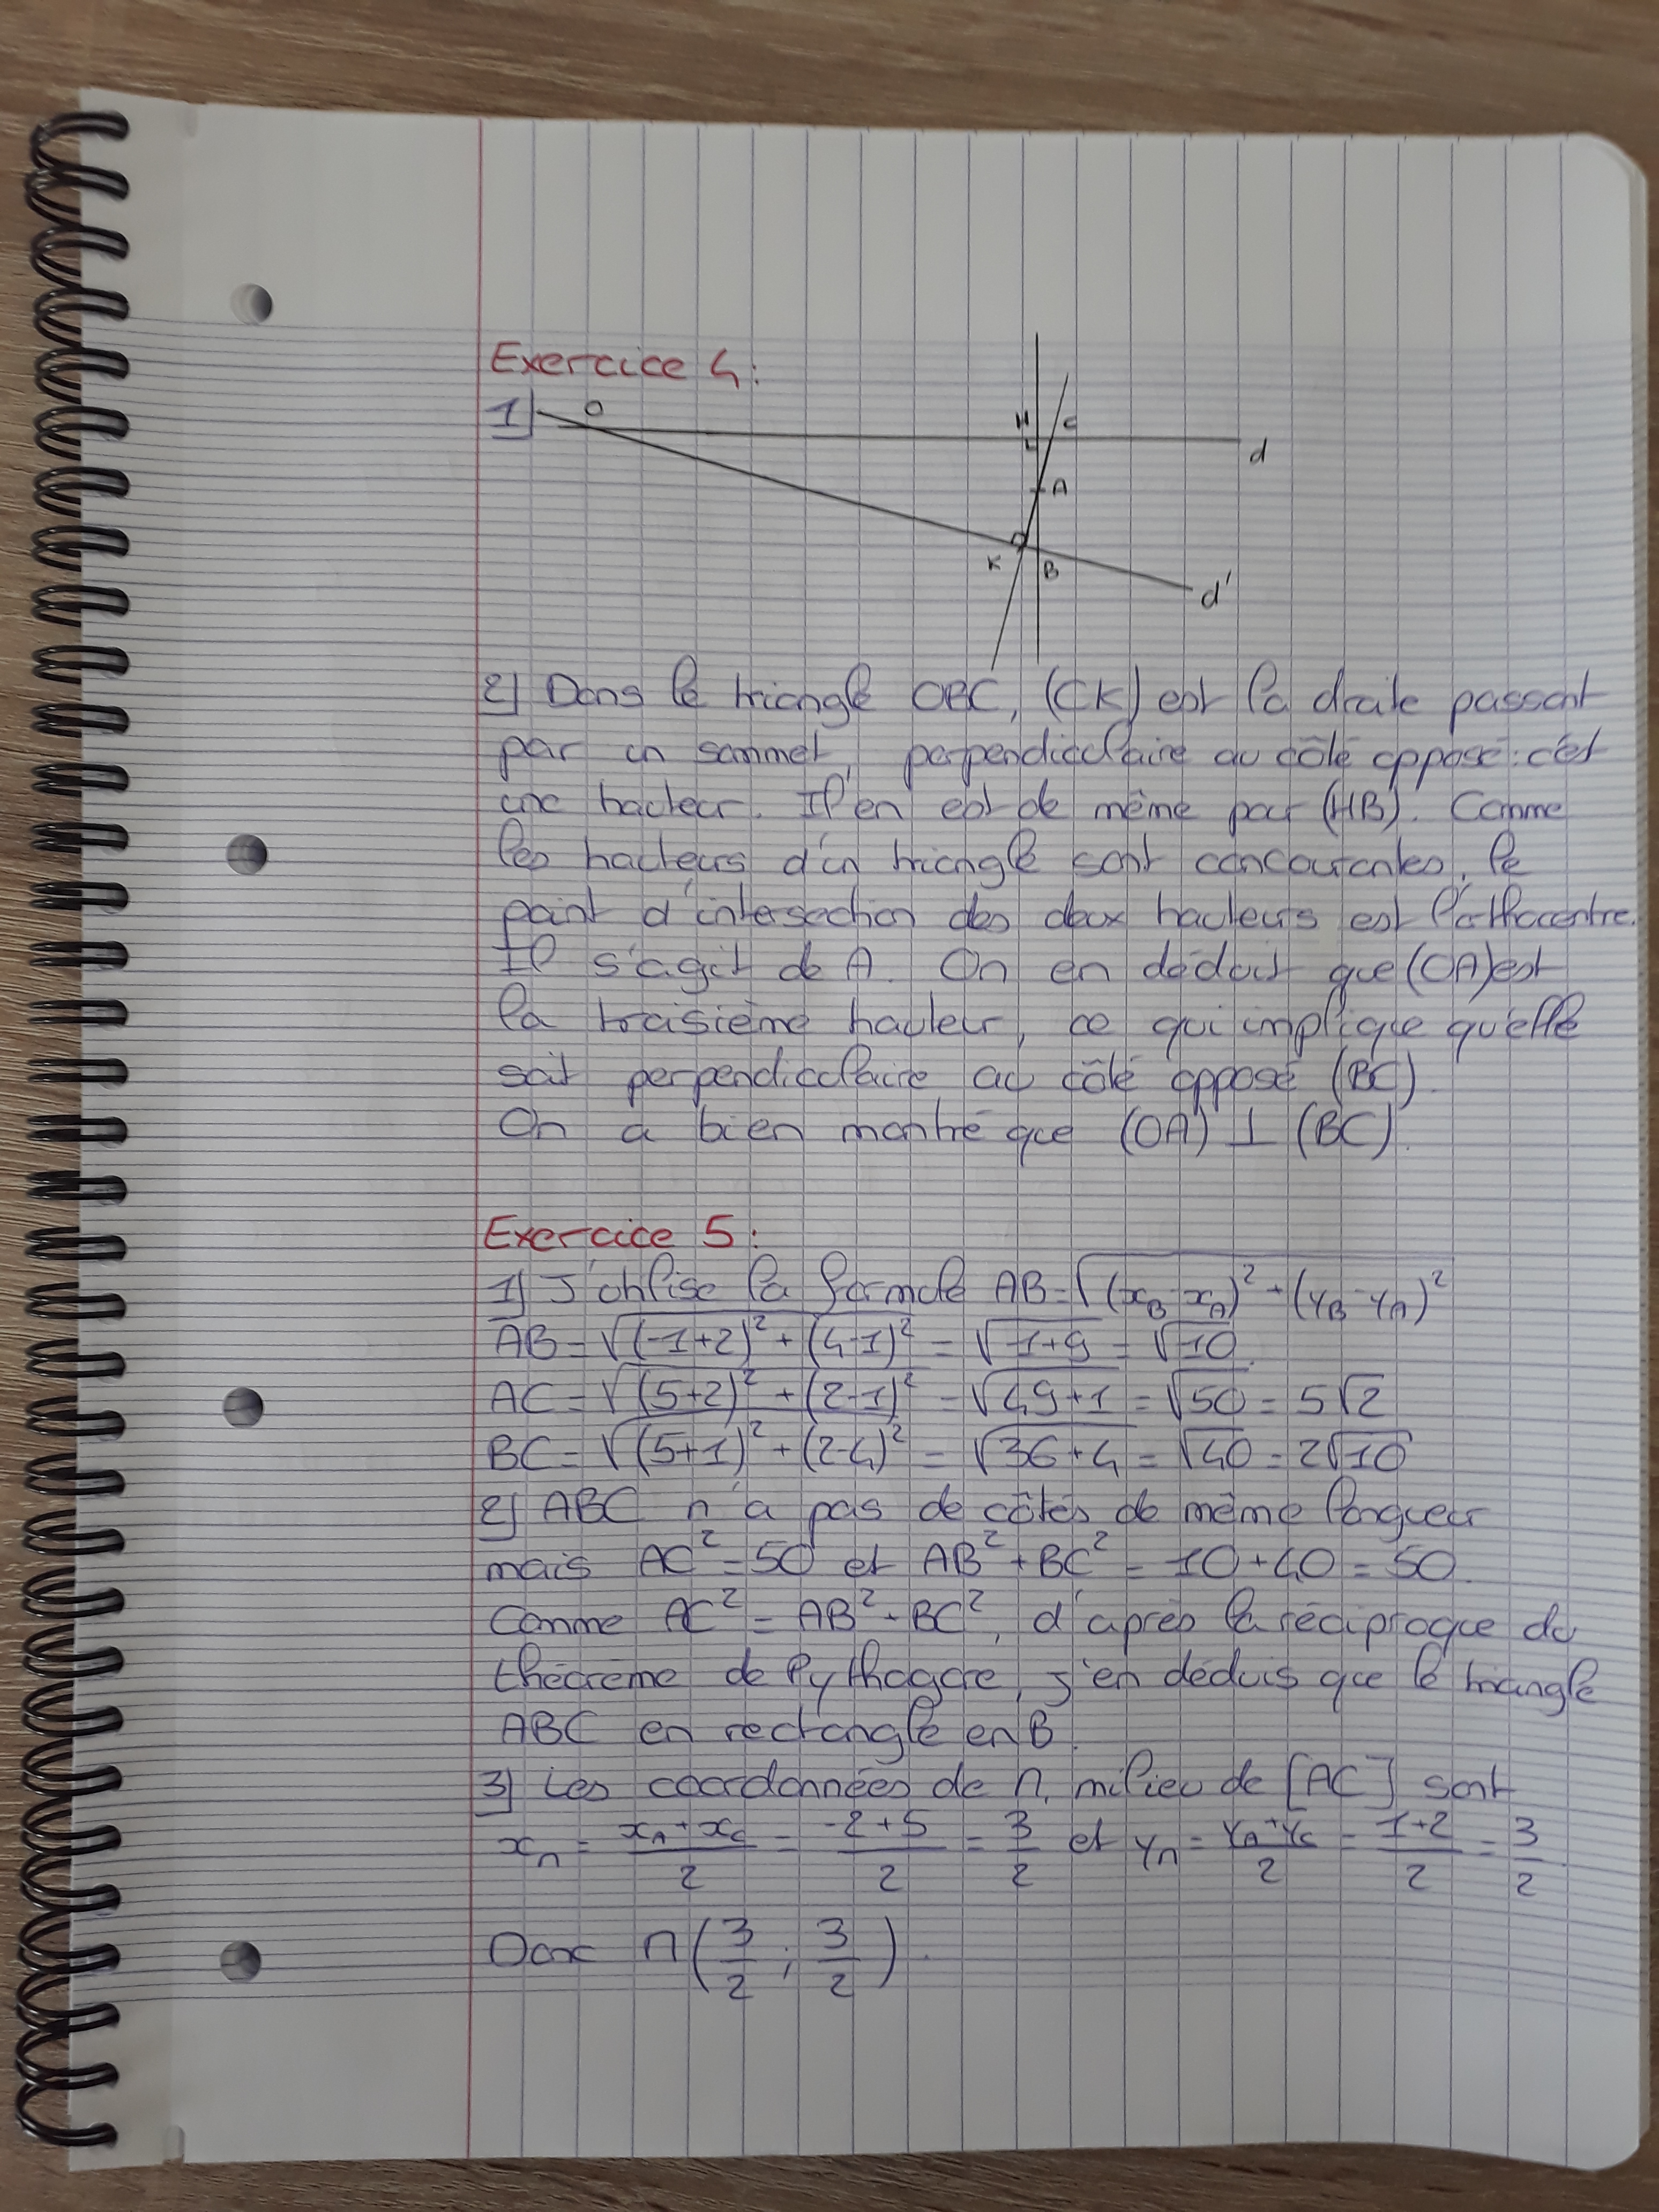 Exercice 4:
1) O H C d
A
K B d'
2) Dans le triangle OBC, (CK) est la droite passant
par un sommet, perpendiculaire au côté opposé : c'est
une hauteur. Il en est de même pour (HB). Comme
les hauteurs d'un triangle sont concourantes, le
point d'intersection des deux hauteurs est l'orthocentre.
Il s'agit de A. On en déduit que (OA) est
la troisième hauteur, ce qui implique qu'elle
soit perpendiculaire au côté opposé (BC).
On a bien montré que (OA) ⊥ (BC).
Exercice 5:
1) J'utilise la formule AB = √((x_B - x_A)² + (y_B - y_A)²)
AB = √((-1+2)² + (4-1)²) = √(1+9) = √10.
AC = √((5+2)² + (2-1)²) = √(49+1) = √50 = 5√2
BC = √((5+1)² + (2-4)²) = √(36+4) = √40 = 2√10
2) ABC n'a pas de côtés de même longueur
mais AC² = 50 et AB² + BC² = 10 + 40 = 50.
Comme AC² = AB² + BC², d'après la réciproque du
théorème de Pythagore, j'en déduis que le triangle
ABC en rectangle en B.
3) Les coordonnées de M, milieu de [AC] sont
x_M = (x_A + x_C)/2 = (-2+5)/2 = 3/2 et y_M = (y_A + y_C)/2 = (1+2)/2 = 3/2
Donc M(3/2 ; 3/2).